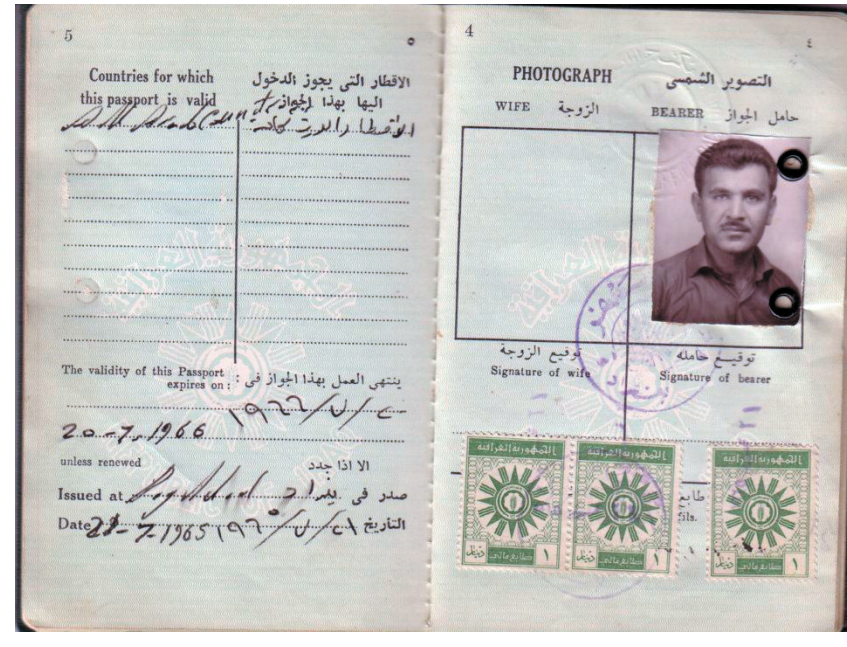 5
٥
Countries for which
this passport is valid
الاقطار التي يجوز الدخول
اليها بهذا الجواز
All Arab Count
الاقطار العربية كافة
The validity of this Passport
expires on :
ينتهى العمل بهذا الجواز فى :
٢٠/٧/١٩٦٦
20-7-1966
unless renewed
الا اذا جدد
Issued at Baghdad
صدر فى بغداد
Date 21-7-1965
التاريخ ٢١/٧/١٩٦٥
4
٤
PHOTOGRAPH
التصوير الشمسى
WIFE
الزوجة
BEARER
حامل الجواز
توقيع الزوجة
Signature of wife
توقيع حامله
Signature of bearer
الجمهورية العراقية
الجمهورية العراقية
الجمهورية العراقية
طابع
fils.
١ دينار
طابع مالي
١ دينار
طابع مالي
١ دينار
طابع مالي
الجمهورية العراقية